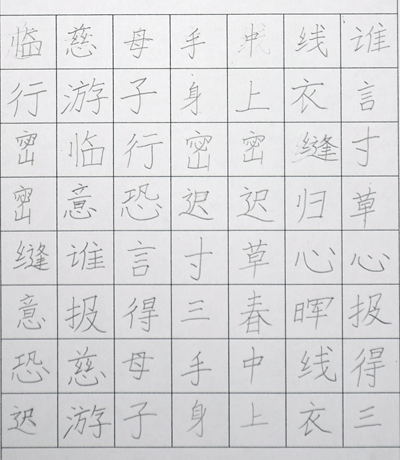 临慈母手中线谁
行游子身上衣言
密临行密密缝寸
密意恐迟迟归草
缝谁言寸草心心
意报得三春晖报
恐慈母手中线得
迟游子身上衣三